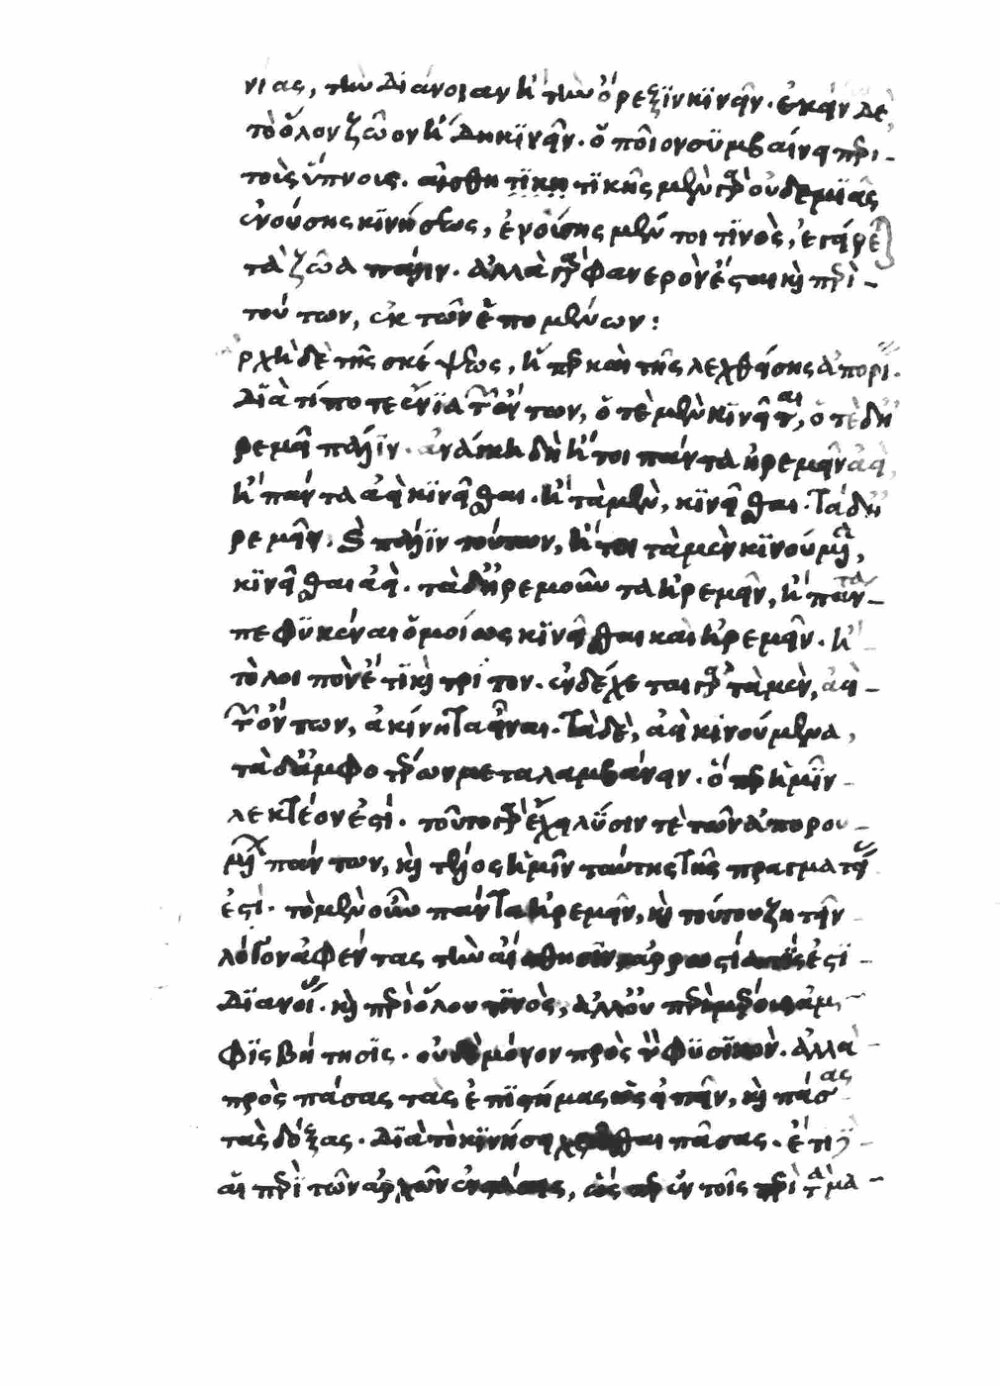 νίας, τὴν διάνοιαν ἢ τὴν ὄρεξϊν κϊνεῖν· ἐκείνην δὲ
τὸ ὅλον ζῶον ἤδη κϊνεῖν· ὃ ποῖον συμβαίνει περὶ
τοὺς ὕπνους. αἰσθητϊκῆς μὲν γὰρ οὐδεμϊᾶς
ἐνούσης κϊνήσεως, ἐνούσης μέν τοι τϊνὸς, ἐγείρε
τὰ ζῶα πάλϊν. ἀλλὰ γὰρ φανερὸν ἔσται καὶ περὶ
τούτων, ἐκ τῶν ἑπομένων:
ἀρχὴ δὲ τῆς σκέψεως, ἥπερ καὶ τῆς λεχθείσης ἀπορί.
Δϊὰ τί ποτε ἔνϊα τῶν ὄντων, ὁτὲ μὲν κϊνεῖται, ὁτὲ δὲ ἠ
ρεμεῖ πάλϊν. ἀνάγκη δὴ ἤτοι πάντα ἠρεμεῖν ἀεὶ,
ἢ πάντα ἀεὶ κϊνεῖσθαι. ἢ τὰ μὲν, κϊνεῖσθαι. τὰ δὲ ἠ
ρεμεῖν. καὶ πάλϊν τούτων, ἤτοι τὰ μὲν κϊνούμενα,
κϊνεῖσθαι ἀεὶ. τὰ δὲ ἠρεμοῦντα ἠρεμεῖν, ἢ πάντα
πεφυκέναι ὁμοίως κϊνεῖσθαι καὶ ἠρεμεῖν. ἢ
τὸ λοιπὸν ἔτϊ καὶ τρίτον. ἐνδέχεται γὰρ τὰ μὲν, ἀεὶ
τῶν ὄντων, ἀκίνητα εἶναι. τὰ δὲ, ἀεὶ κινούμενα,
τὰ δ' ἀμφοτέρων μεταλαμβάνειν. ὅπερ ἡμῖν
λεκτέον ἐστί. τοῦτο γὰρ ἔχει λύσιν τὲ τῶν ἀπορου
μένων πάντων, καὶ τέλος ἡμῖν ταύτης τῆς πραγματείας
ἐστί. τὸ μὲν οὖν πάντα ἠρεμεῖν, καὶ τούτου ζητεῖν
λόγον ἀφέντας τὴν αἴσθησϊν, ἀρρωστία τϊς ἐστϊ
Δϊανοίας. καὶ περὶ ὅλου τϊνὸς, ἀλλ' οὐ περὶ μέρους ἀμ
φϊσβήτησϊς. οὐδὲ μόνον πρὸς τὸν φϋσϊκὸν. ἀλλὰ
πρὸς πάσας τὰς ἐπϊστήμας ὡς εἰπεῖν, καὶ πάσας
τὰς δόξας. Δϊὰ τὸ κϊνήσει χρῆσθαι πᾶσας. ἔτι δ'
αἱ περὶ τῶν ἀρχῶν ἐνστάσεις, ὥσπερ ἐν τοῖς περὶ τὰ μα